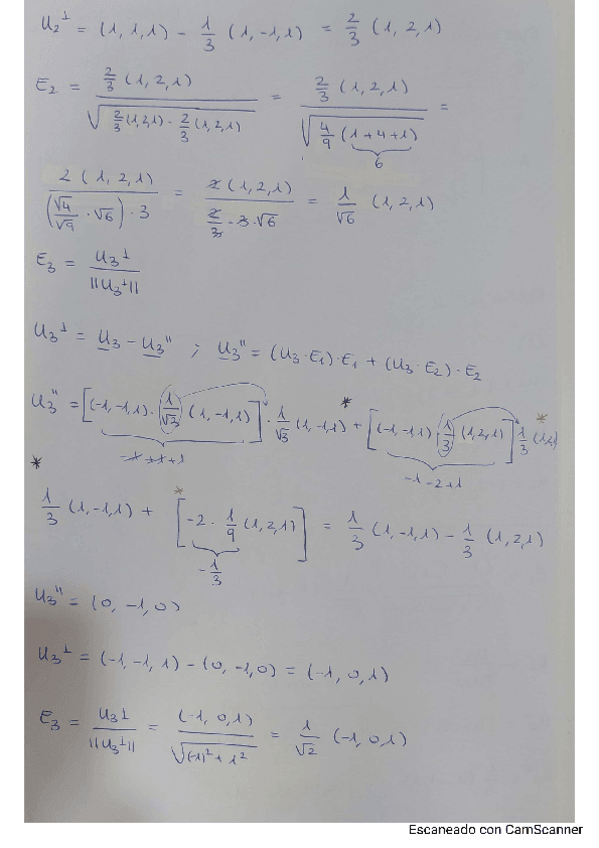 U₂^⊥ = (1, 1, 1) - 1/3 (1, -1, 1) = 2/3 (1, 2, 1)
E₂ = 2/3 (1, 2, 1) / √(2/3 (1,2,1) · 2/3 (1,2,1)) = 2/3 (1, 2, 1) / √(4/9 (1+4+1)) =
6
2 (1, 2, 1) / ((√4/√9 · √6) · 3) = 2 (1, 2, 1) / (2/3 · 3 · √6) = 1/√6 (1, 2, 1)
E₃ = U₃^⊥ / ||U₃^⊥||
U₃^⊥ = U₃ - U₃^" ; U₃^" = (U₃ · E₁) · E₁ + (U₃ · E₂) · E₂
U₃^" = [(-1, -1, 1) · 1/√3 (1, -1, 1)] · 1/√3 (1, -1, 1) + [(-1, -1, 1) 1/3 (1, 2, 1)] 1/3
* *
-1+1+1
-1 -2+1
* *
1/3 (1, -1, 1) + [-2 · 1/9 (1, 2, 1)] = 1/3 (1, -1, 1) - 1/3 (1, 2, 1)
-1/3
U₃^" = (0, -1, 0)
U₃^⊥ = (-1, -1, 1) - (0, -1, 0) = (-1, 0, 1)
E₃ = U₃^⊥ / ||U₃^⊥|| = (-1, 0, 1) / √((-1)² + 1²) = 1/√2 (-1, 0, 1)
Escaneado con CamScanner